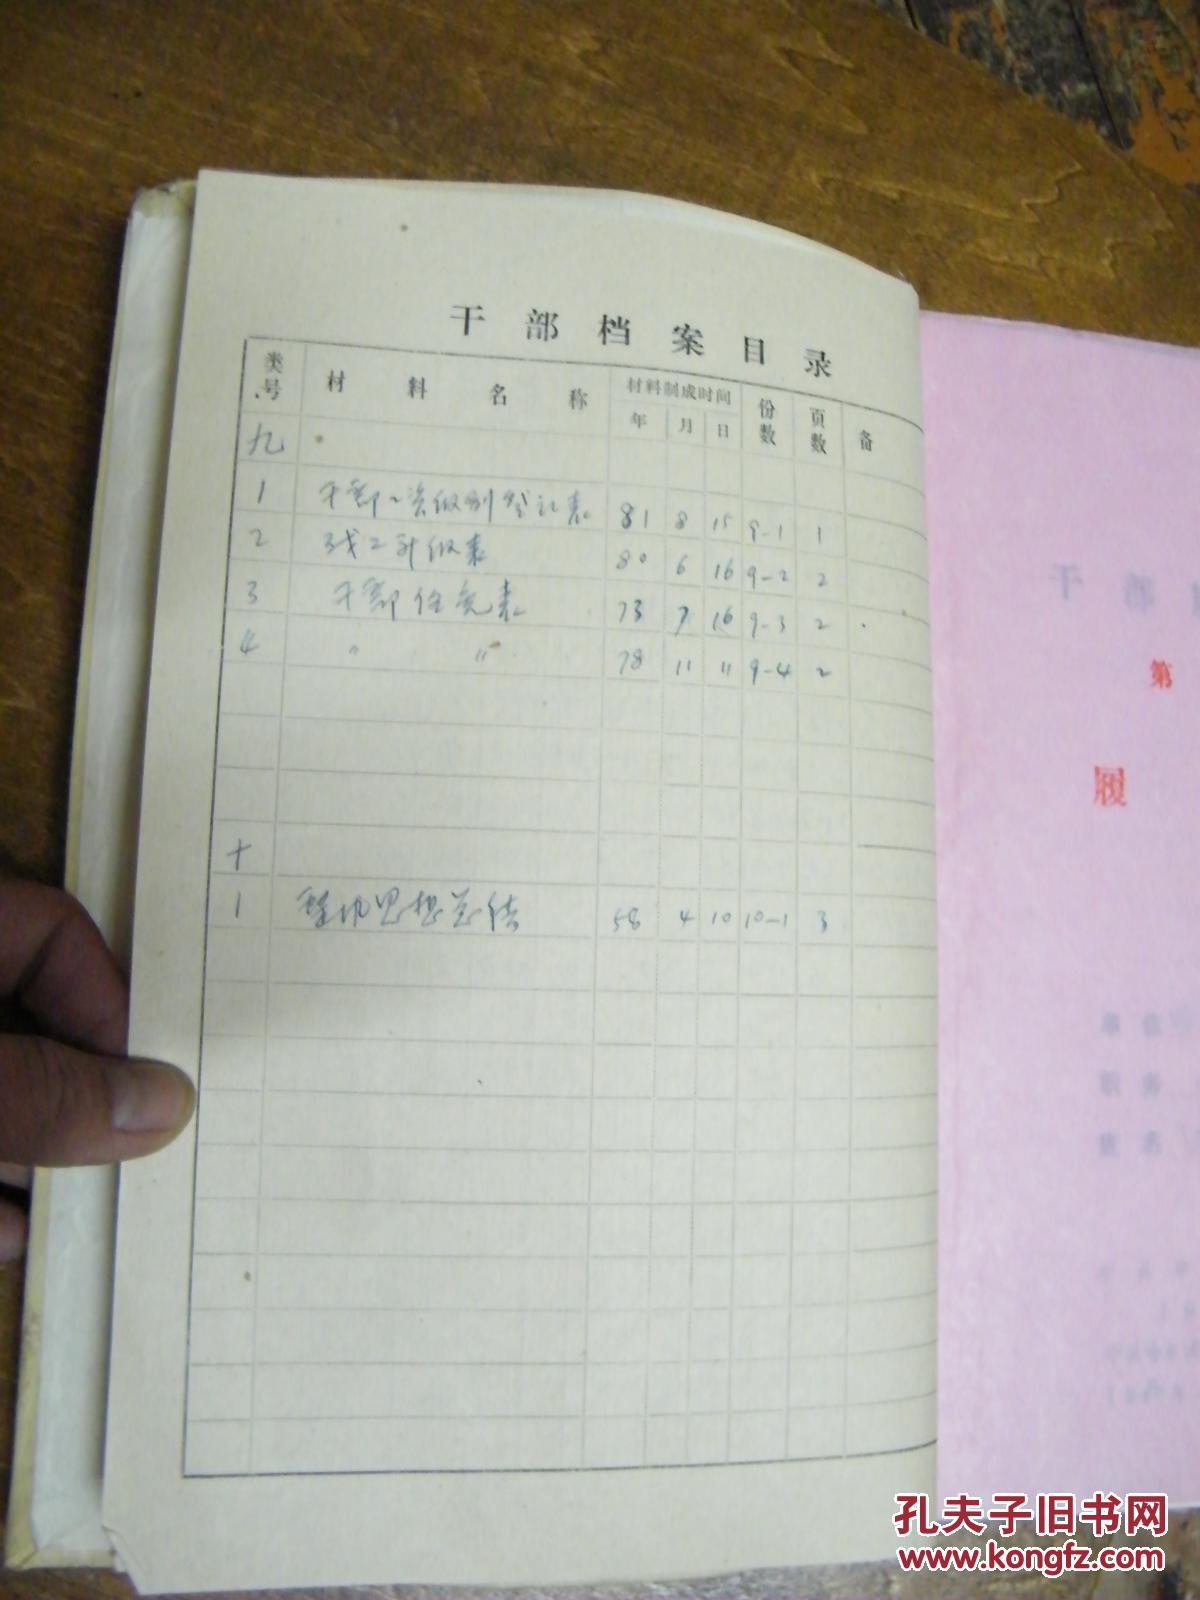 干部档案目录
类号 材料名称 材料制成时间 份数 页数 备
年 月 日
九
1 干部工资级别登记表 81 8 15 9-1 1
2 职工升级表 80 6 16 9-2 2
3 干部任免表 73 7 16 9-3 2
4 〃 〃 78 11 11 9-4 2
十
1 整风思想总结 58 4 10 10-1 3
干部
第
履
孔夫子旧书网
www.kongfz.com